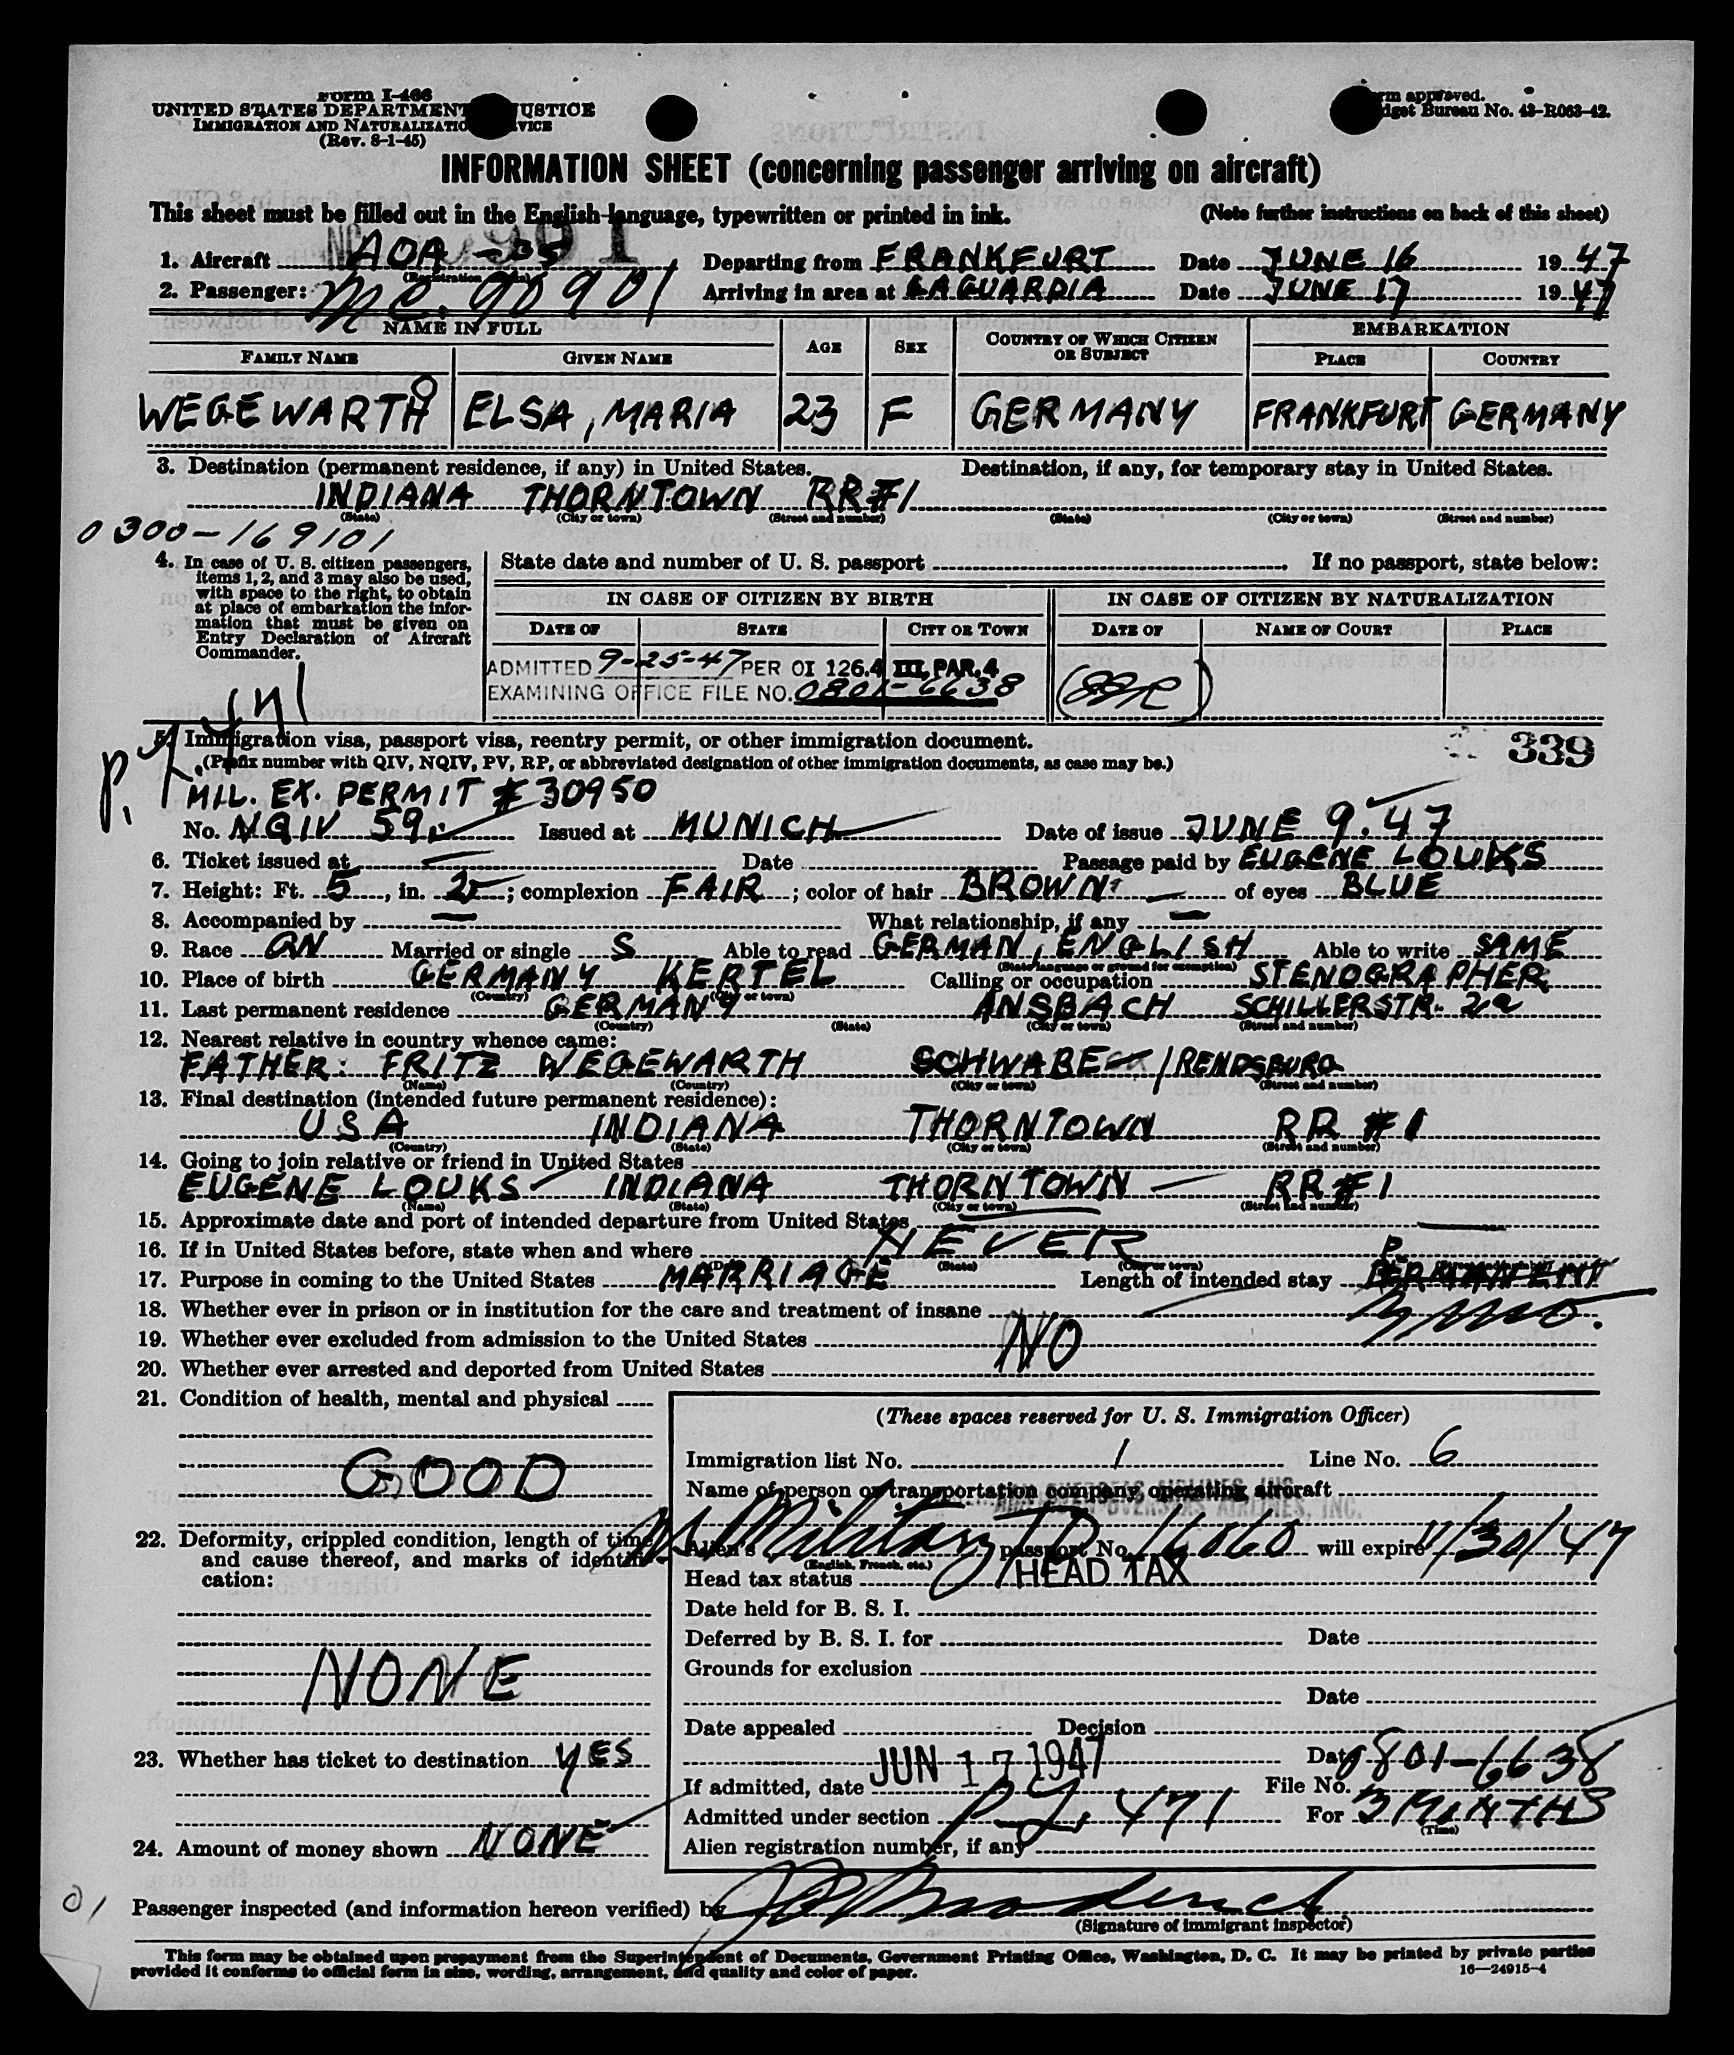 Form I-466
UNITED STATES DEPARTMENT JUSTICE
IMMIGRATION AND NATURALIZATION
(Rev. 8-1-45)
approved.
Budget Bureau No. 43-R063-42.
INFORMATION SHEET (concerning passenger arriving on aircraft)
This sheet must be filled out in the English language, typewritten or printed in ink. (Note further instructions on back of this sheet)
1. Aircraft AOA - 35 Departing from FRANKFURT Date JUNE 16 1947
2. Passenger: Arriving in area at LAGUARDIA Date JUNE 17 1947
NAME IN FULL AGE SEX COUNTRY OF WHICH CITIZEN OR SUBJECT EMBARKATION
FAMILY NAME GIVEN NAME PLACE COUNTRY
WEGEWARTH ELSA, MARIA 23 F GERMANY FRANKFURT GERMANY
3. Destination (permanent residence, if any) in United States. Destination, if any, for temporary stay in United States.
INDIANA THORNTOWN RR#1
(State) (City or town) (Street and number) (State) (City or town) (Street and number)
0300-169101
4. In case of U. S. citizen passengers, items 1, 2, and 3 may also be used, with space to the right, to obtain at place of embarkation the information that must be given on Entry Declaration of Aircraft Commander.
State date and number of U. S. passport If no passport, state below:
IN CASE OF CITIZEN BY BIRTH IN CASE OF CITIZEN BY NATURALIZATION
DATE OF STATE CITY OR TOWN DATE OF NAME OF COURT PLACE
ADMITTED 9-25-47 PER OI 126.4 III, PAR. 4
EXAMINING OFFICE FILE NO. 0801-6638
339
5. Immigration visa, passport visa, reentry permit, or other immigration document.
(Prefix number with QIV, NQIV, PV, RP, or abbreviated designation of other immigration documents, as case may be.)
MIL. EX. PERMIT # 30950
No. NQIV 59 Issued at MUNICH Date of issue JUNE 9. 47
6. Ticket issued at Date Passage paid by EUGENE LOUKS
7. Height: Ft. 5, in. 2; complexion FAIR; color of hair BROWN of eyes BLUE
8. Accompanied by — What relationship, if any —
9. Race GN Married or single S Able to read GERMAN, ENGLISH Able to write SAME
(State language or ground for exemption)
10. Place of birth GERMANY KERTEL Calling or occupation STENOGRAPHER
(Country) (City or town)
11. Last permanent residence GERMANY ANSBACH SCHILLERSTR. 2a
(Country) (State) (City or town) (Street and number)
12. Nearest relative in country whence came:
FATHER: FRITZ WEGEWARTH /RENDSBURG
(Name) (Country) (City or town) (Street and number)
13. Final destination (intended future permanent residence):
USA INDIANA THORNTOWN RR #1
(Country) (State) (City or town) (Street and number)
14. Going to join relative or friend in United States
EUGENE LOUKS INDIANA THORNTOWN RR#1
(Name) (State) (City or town) (Street and number)
15. Approximate date and port of intended departure from United States
16. If in United States before, state when and where NEVER
(State) (City or town)
17. Purpose in coming to the United States MARRIAGE Length of intended stay PERMANENT
3 mo.
18. Whether ever in prison or in institution for the care and treatment of insane
19. Whether ever excluded from admission to the United States NO
20. Whether ever arrested and deported from United States
21. Condition of health, mental and physical
GOOD
22. Deformity, crippled condition, length of time and cause thereof, and marks of identification:
NONE
23. Whether has ticket to destination YES
24. Amount of money shown NONE
(These spaces reserved for U. S. Immigration Officer)
Immigration list No. 1 Line No. 6
Name of person or transportation company operating aircraft
OVERSEAS AIRLINES, INC.
Alien's Military passport No. 16060 will expire 11/30/47
(English, French, etc.)
Head tax status HEAD TAX
Date held for B. S. I.
Deferred by B. S. I. for Date
Grounds for exclusion
Date
Date appealed Decision
Date 0801-6638
If admitted, date JUN 17 1947 File No.
Admitted under section P.L. 471 For 3 MONTHS
(Time)
Alien registration number, if any
Passenger inspected (and information hereon verified) by
(Signature of immigrant inspector)
This form may be obtained upon prepayment from the Superintendent of Documents, Government Printing Office, Washington, D. C. It may be printed by private parties
provided it conforms to official form in size, wording, arrangement, and quality and color of paper. 16—24915-4